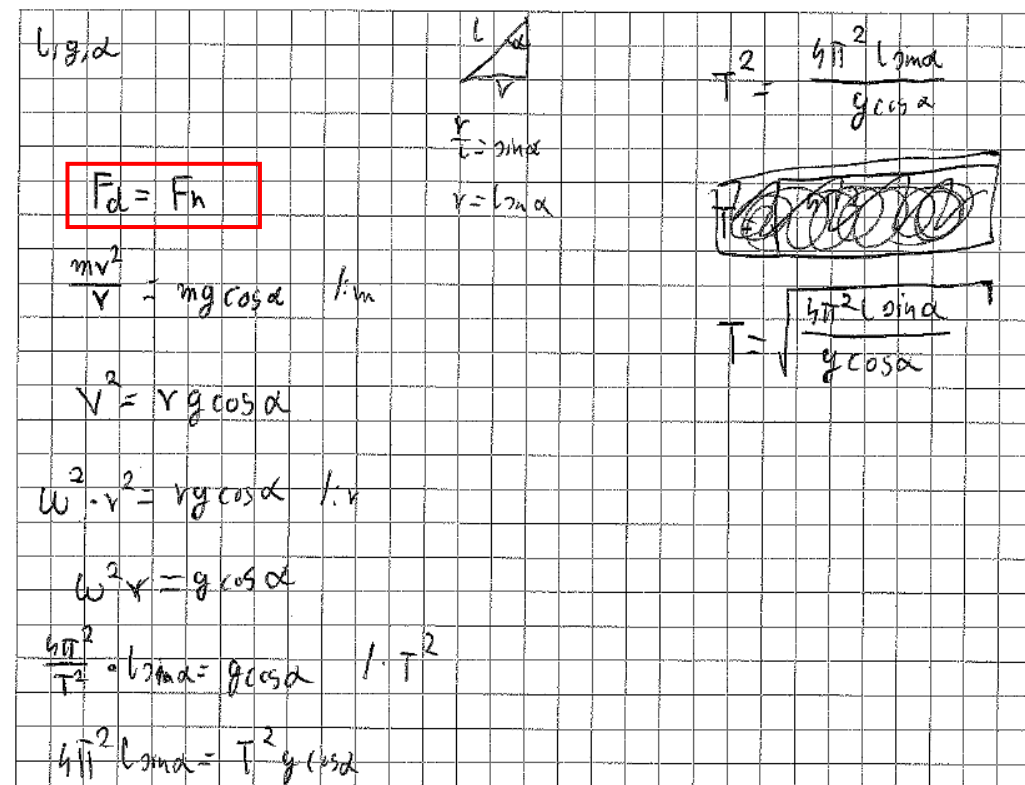 l, g, α
F_d = F_n
mv²/r = mg cos α /:m
v² = r g cos α
ω² · r² = r g cos α /:r
ω² r = g cos α
4π²/T² · l sin α = g cos α /· T²
4π² l sin α = T² g cos α
l α
r
r/l = sin α
r = l sin α
T² = 4π² l sin α / g cos α
T = √(4π² l sin α / g cos α)